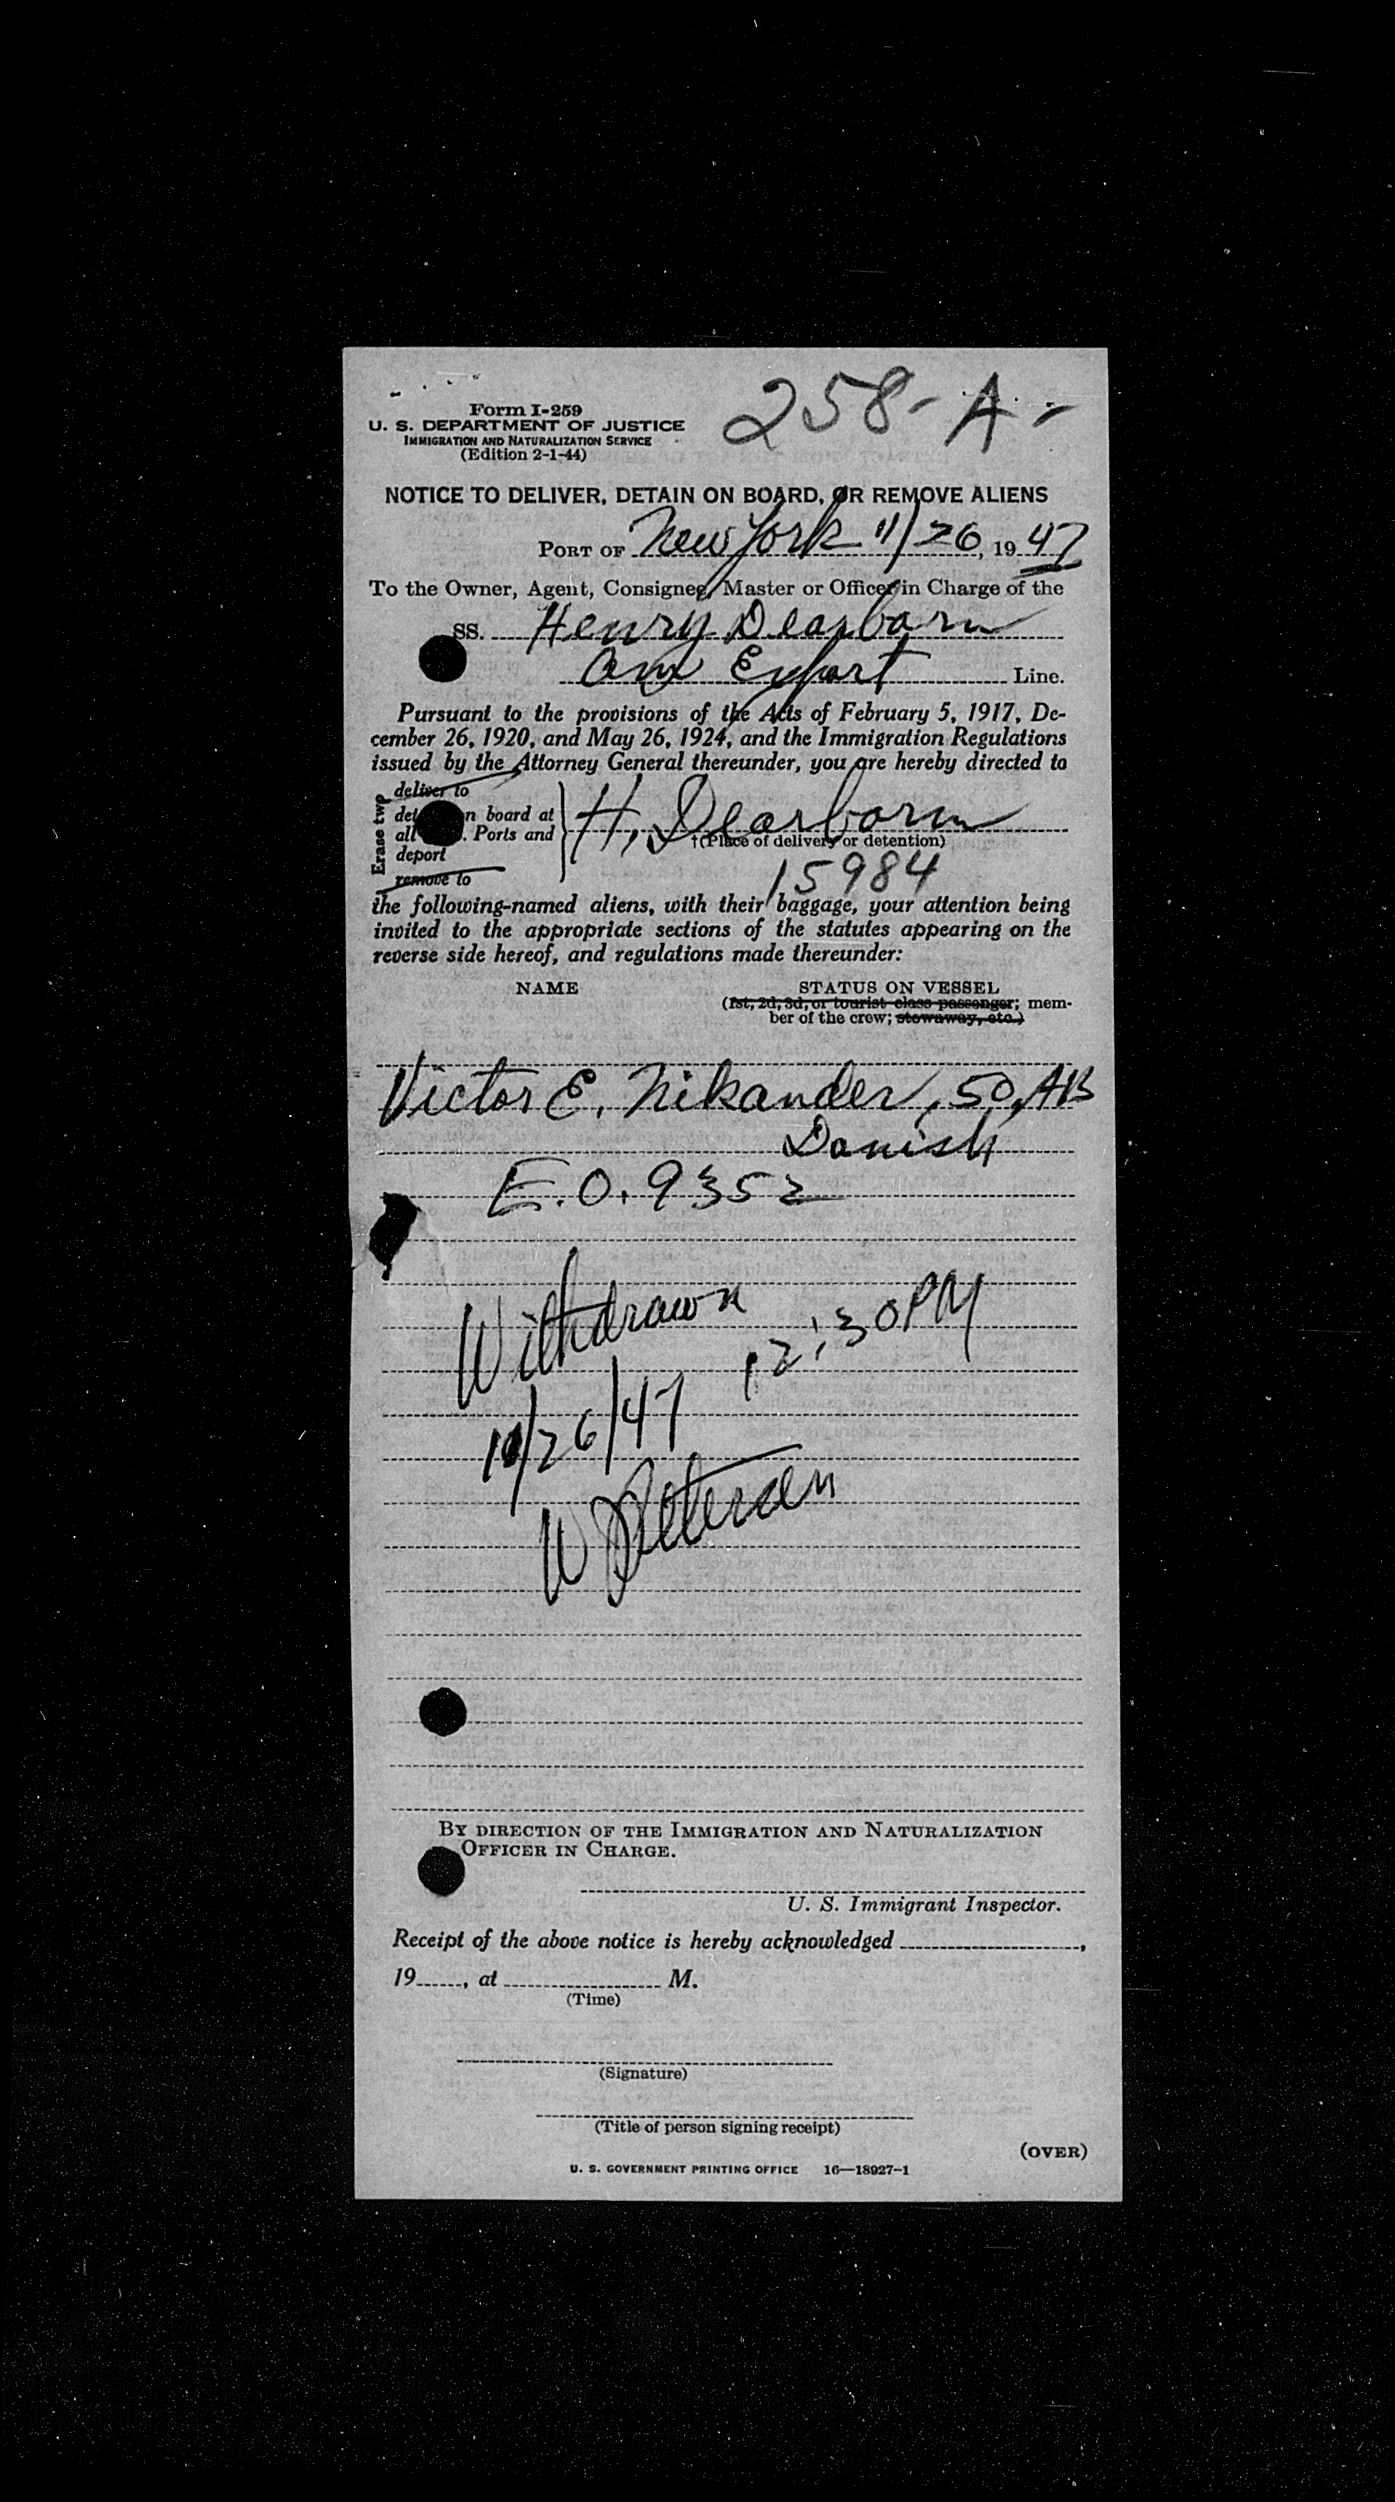 258-A-
Form I-259
U. S. DEPARTMENT OF JUSTICE
IMMIGRATION AND NATURALIZATION SERVICE
(Edition 2-1-44)
NOTICE TO DELIVER, DETAIN ON BOARD, OR REMOVE ALIENS
PORT OF New York 11/26, 1947
To the Owner, Agent, Consignee, Master or Officer in Charge of the
SS. Henry Dearborn
Am Export Line.
Pursuant to the provisions of the Acts of February 5, 1917, De-
cember 26, 1920, and May 26, 1924, and the Immigration Regulations
issued by the Attorney General thereunder, you are hereby directed to
Erase two
deliver to
det n board at
all . Ports and
deport
remove to
H. Dearborn
†(Place of delivery or detention)
15984
the following-named aliens, with their baggage, your attention being
invited to the appropriate sections of the statutes appearing on the
reverse side hereof, and regulations made thereunder:
NAME STATUS ON VESSEL
(1st, 2d, 3d, or tourist class passenger; mem-
ber of the crew; stowaway, etc.)
Victor E. Nikander, 50, AB
Danish
E.O. 9352
Withdrawn
12:30 PM
11/26/47
W Petersen
BY DIRECTION OF THE IMMIGRATION AND NATURALIZATION
OFFICER IN CHARGE.
U. S. Immigrant Inspector.
Receipt of the above notice is hereby acknowledged ,
19 , at M.
(Time)
(Signature)
(Title of person signing receipt)
(OVER)
U. S. GOVERNMENT PRINTING OFFICE 16—18927-1